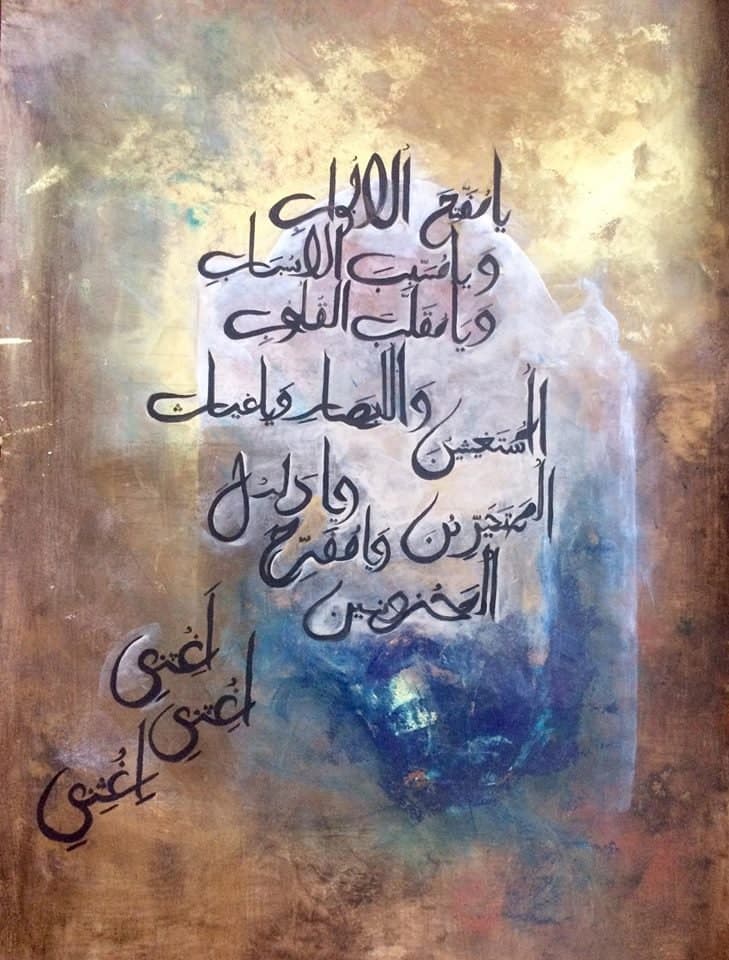 يا مُفَتِّحَ الابُوابِ
وَيا مُسَبِّبَ الاسُبَابِ
وَيا مُقَلِّبَ القُلُوبِ
وَالابَصارِ وَيا غياث
المُستَغيثين
وَيا دَليلَ
المُتَحَيِّرين
وَيا مُفَرِّحَ
المَحْزونين
اَغِثْني
اَغِثني
اِغُثِني